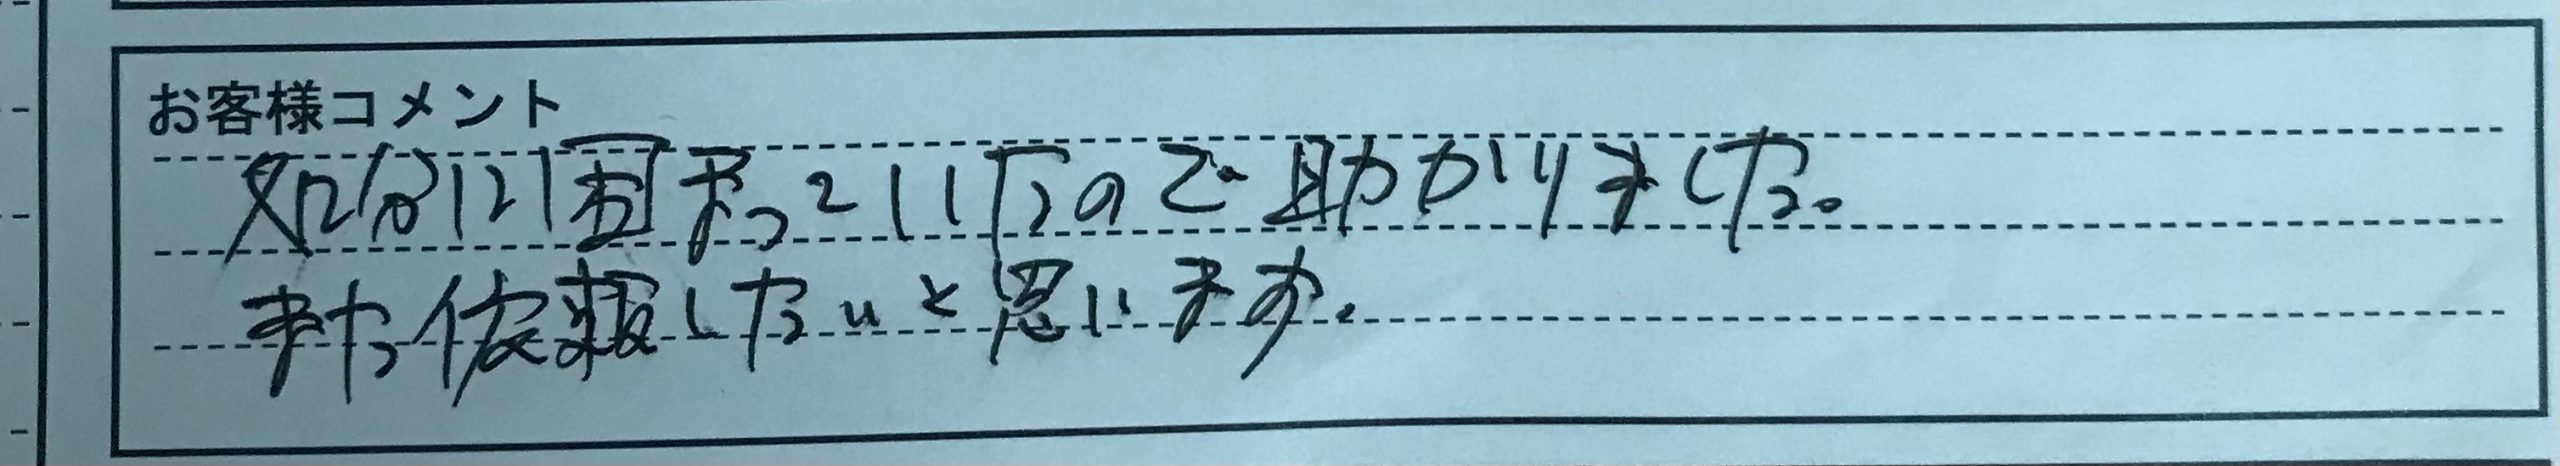 お客様コメント
処分に困まっていたので助かりました。
また依頼したいと思います。